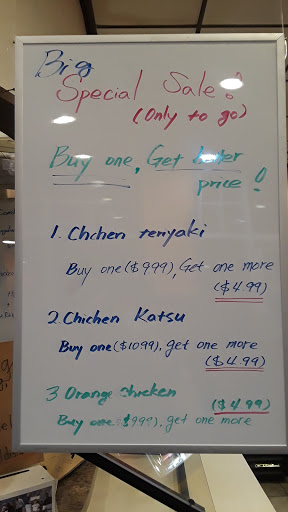 Big
Special Sale!
(Only to go)
Buy one, Get better
price!
1. Chchen teriyaki
Buy one ($999), Get one more
($4.99)
2. Chichen Katsu
Buy one ($1099), get one more
($4.99)
3 Orange Chicken
($4.99)
Buy one ($999), get one more